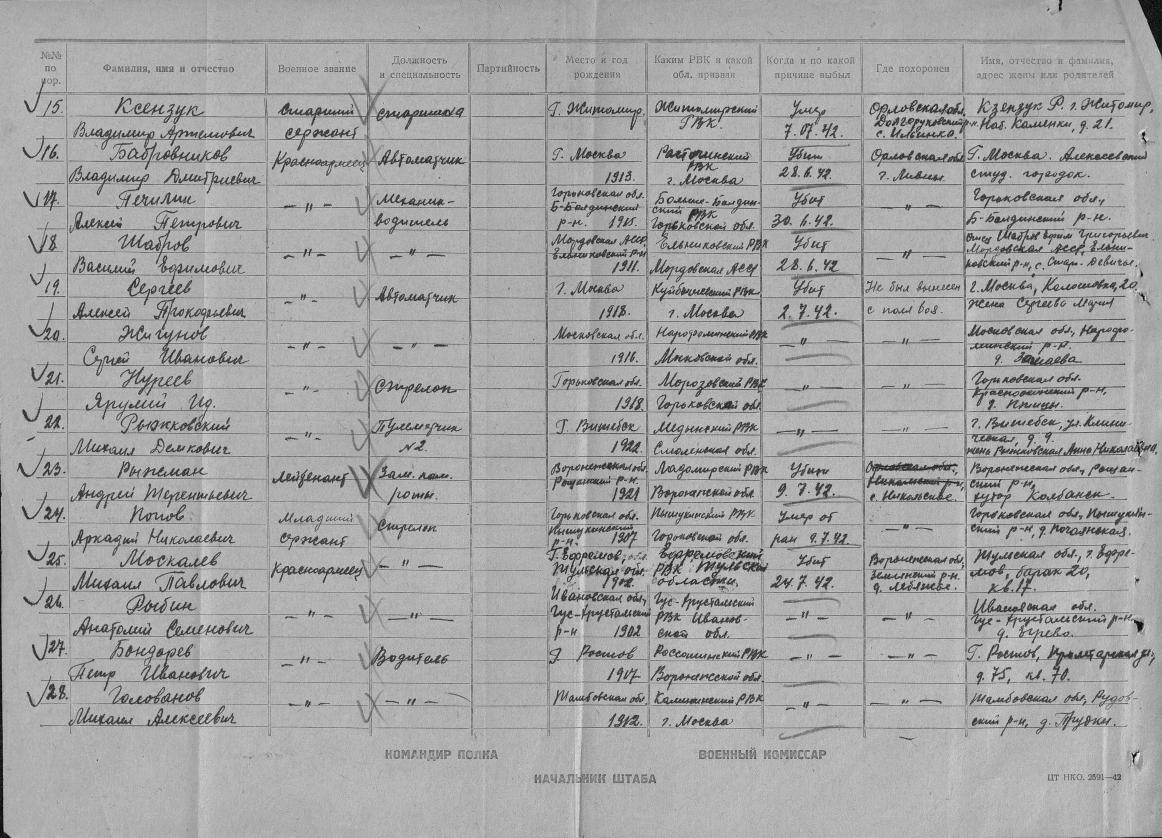 №№ по пор. Фамилия, имя и отчество Военное звание Должность и специальность Партийность Место и год рождения Каким РВК и какой обл. призван Когда и по какой причине выбыл Где похоронен Имя, отчество и фамилия, адрес жены или родителей
15. Ксензук старший старшина Г. Житомир. Житомирский Умер Орловская обл. Ксензук Р. г. Житомир,
Владимир Артемович сержант РВК. 7.07.42. Долгоруковский р-н с. Ильинка. Наб. Каменки, д. 21.
16. Бабровников Красноармеец Автоматчик Г. Москва РВК Убит Орловская обл. Г. Москва. Алексеевский
Владимир Дмитриевич 1913. г. Москва 28.6.42. г. Ливны студ. городок.
17. Печилин — " — Механик- Горьковская обл. Больше-Болдин- Убит — " — Горьковская обл,
Алексей Петрович водитель Б-Болдинский р-н. 1905. ский РВК Горьковской обл. 30.6.42. Б-Болдинский р-н.
18 Шабров — " — — " — Мордовская Асср, Ельниковский РВК Убит — " — отец Шабров Ефим Григорьевич
Василий Ефимович Ельниковский р-н 1911. Мордовская Асср 28.6.42 Мордовская Асср, Ельни- ковский р-н, с. Стар. Девичье.
19. Сергеев — " — Автоматчик г. Москва Куйбышевский РВК. Убит Не был вынесен г. Москва,
Алексей Прокофьевич 1918. г. Москва 2.7.42. с поля боя. жена Сергеева Мария
20. Жигунов — " — — " — Московская обл. Нарофоминский РВК — " — — " — Московская обл, Нарофо-
Сергей Иванович 1916. Московской обл. минский р-н. д.
21. Нуреев — " — Стрелок Горьковская обл. РВК — " — — " — Горьковская обл.
Ярулий 1918. Горьковской обл. р-н,
22. Рыжковский — " — Пулеметчик Г. Витебск Медынский РВК — " — — " — г. Витебск, ул. Клини-
Михаил Демкович №2. 1922. Смоленская обл. ческая, д. 9. жена Рыжковская Анна Николаевна.
23. Рыжман Лейтенант Зам. ком. Воронежская обл. РВК Убит Орловская обл., Воронежская обл,
Андрей Терентьевич роты. 1921 Воронежской обл. 9.7.42. Никольский р-н, с. Никольское. ский р-н, хутор Колбанск.
24. Попов Младший стрелок Горьковская обл. РВК Умер от — " — Горьковская обл,
Аркадий Николаевич сержант р-н. 1907 Горьковской обл. ран 9.7.42 ский р-н, д.
25. Москалев Красноармеец — " — Г. Ефремов, Ефремовский Убит Воронежская обл, Тульская обл, г. Ефре-
Михаил Павлович Тульская обл. 1902. РВК Тульская области, 24.7.42. Землянский р-н. д. Лебяжье. мов, барак 20, кв. 17.
26. Рыбин — " — — " — Ивановская обл, Гус-Хрустальский — " — — " — Ивановская обл.
Анатолий Семенович Гус-Хрустальский р-н 1902 РВК Иванов- ской обл. Гус-Хрустальский р-н д.
27. Бондарев — " — Водитель г. Ростов Россошинский РВК — " — — " — Г. Ростов,
Петр Иванович 1917 Воронежской обл. д. 75, кв. 70.
28. Голованов — " — — " — Тамбовская обл. Калининский РВК — " — — " — Тамбовская обл, Рудов-
Михаил Алексеевич 1912. г. Москва ский р-н, д. Прудки.
КОМАНДИР ПОЛКА ВОЕННЫЙ КОМИССАР
НАЧАЛЬНИК ШТАБА
ЦТ НКО. 2591—42